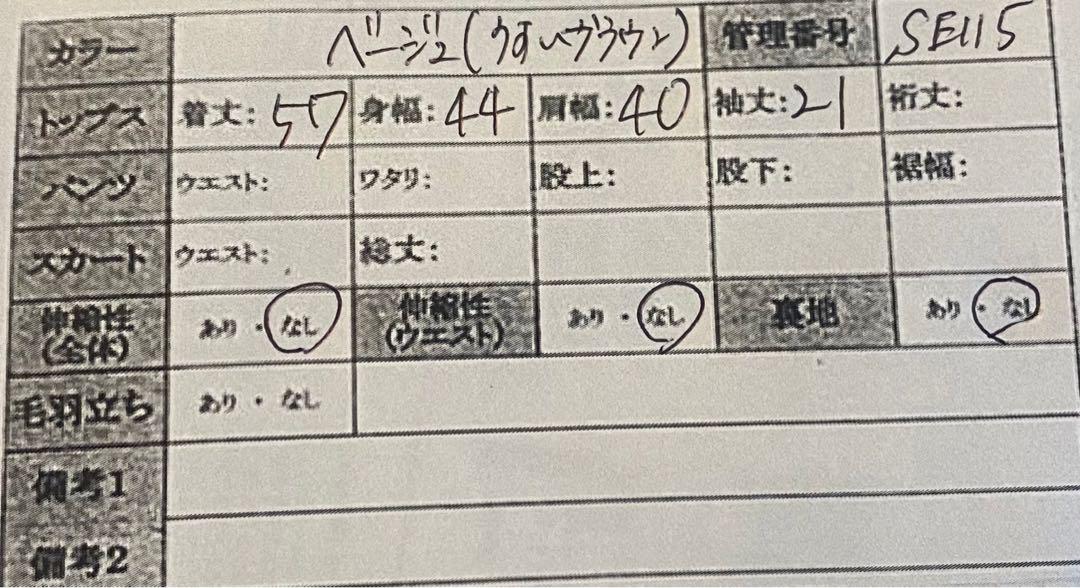 カラー ベージュ(うすいブラウン) 管理番号 SE115
トップス 着丈: 57 身幅: 44 肩幅: 40 袖丈: 21 裄丈:
パンツ ウエスト: ワタリ: 股上: 股下: 裾幅:
スカート ウエスト: 総丈:
伸縮性(全体) あり ・ なし 伸縮性(ウエスト) あり ・ なし 裏地 あり ・ なし
毛羽立ち あり ・ なし
備考1
備考2